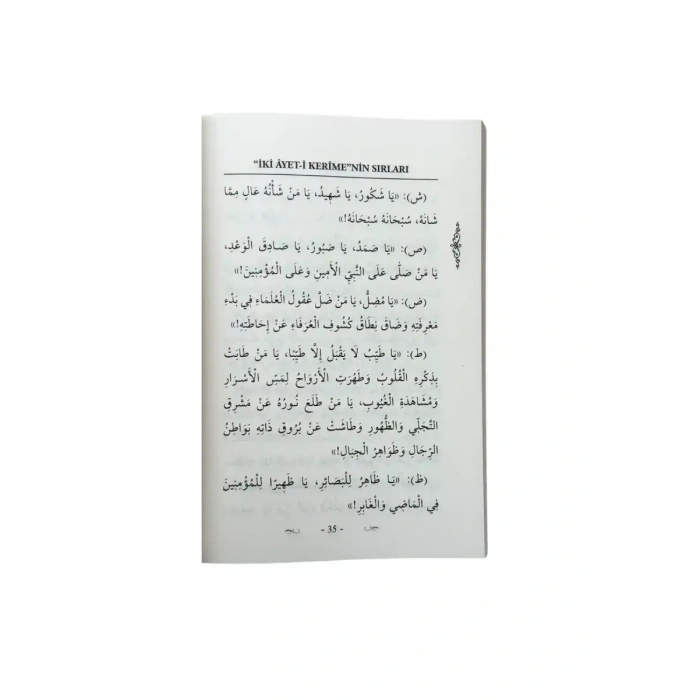 “İKİ ÂYET-İ KERİME”NİN SIRLARI
(ش): «يَا شَكُورُ، يَا شَهِيدُ، يَا مَنْ شَأْنُهُ عَالٍ مِمَّا
شَانَهُ، سُبْحَانَهُ سُبْحَانَهُ!»
(ص): «يَا صَمَدُ، يَا صَبُورُ، يَا صَادِقَ الْوَعْدِ،
يَا مَنْ صَلَّى عَلَى النَّبِيِّ الْأَمِينِ وَعَلَى الْمُؤْمِنِينَ!»
(ض): «يَا مُضِلُّ، يَا مَنْ ضَلَّ عُقُولُ الْعُلَمَاءِ فِي بَدْءِ
مَعْرِفَتِهِ وَضَاقَ نِطَاقُ كُشُوفِ الْعُرَفَاءِ عَنْ إِحَاطَتِهِ!»
(ط): «يَا طَيِّبُ لَا يَقْبَلُ إِلَّا طَيِّبًا، يَا مَنْ طَابَتْ
بِذِكْرِهِ الْقُلُوبُ وَطَهُرَتِ الْأَرْوَاحُ لِمَسِّ الْأَسْرَارِ
وَمُشَاهَدَةِ الْغُيُوبِ، يَا مَنْ طَلَعَ نُورُهُ عَنْ مَشْرِقِ
التَّجَلِّي وَالظُّهُورِ وَطَاشَتْ عَنْ بُرُوقِ ذَاتِهِ بَوَاطِنُ
الرِّجَالِ وَظَوَاهِرُ الْجِبَالِ!»
(ظ): «يَا ظَاهِرُ لِلْبَصَائِرِ، يَا ظَهِيرًا لِلْمُؤْمِنِينَ
فِي الْمَاضِي وَالْغَابِرِ!»
- 35 -